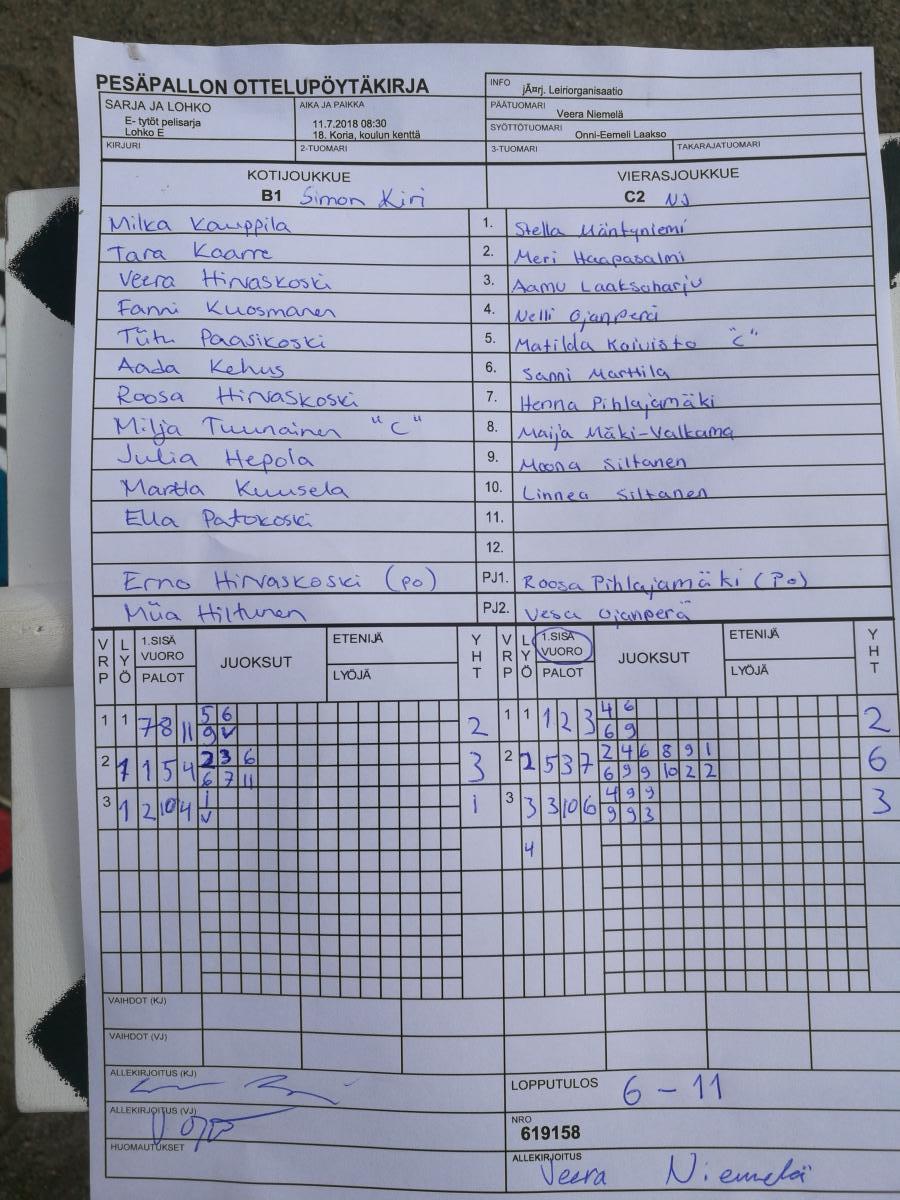 PESÄPALLON OTTELUPÖYTÄKIRJA
INFO jÃ¤rj. Leiriorganisaatio
SARJA JA LOHKO
E- tytöt pelisarja
Lohko E
AIKA JA PAIKKA
11.7.2018 08:30
18. Koria, koulun kenttä
PÄÄTUOMARI
Veera Niemelä
SYÖTTÖTUOMARI Onni-Eemeli Laakso
KIRJURI 2-TUOMARI 3-TUOMARI TAKARAJATUOMARI
KOTIJOUKKUE VIERASJOUKKUE
B1 Simon Kiri C2 NJ
Milka Kauppila 1. Stella Mäntyniemi
Tara Kaarre 2. Meri Haapasalmi
Veera Hirvaskoski 3. Aamu Laaksoharju
Fanni Kuosmanen 4. Nelli Ojanperä
Tiitu Paasikoski 5. Matilda Koivisto "C"
Aada Kehus 6. Sanni Marttila
Roosa Hirvaskoski 7. Henna Pihlajamäki
Milja Tuunainen "C" 8. Maija Mäki-Valkama
Julia Hepola 9. Moona Siltanen
Martta Kuusela 10. Linnea Siltanen
Ella Patokoski 11.
12.
Erno Hirvaskoski (po) PJ1. Roosa Pihlajamäki (Po)
Miia Hiltunen PJ2. Vesa Ojanperä
VRP LYÖ 1.SISÄ VUORO PALOT JUOKSUT ETENIJÄ LYÖJÄ YHT VRP LYÖ 1.SISÄ VUORO PALOT JUOKSUT ETENIJÄ LYÖJÄ YHT
1 1 7 8 11 5 6 2 1 1 1 2 3 4 6 2
9 v 6 9
2 1 1 5 4 2 3 6 3 2 2 5 3 7 2 4 6 8 9 1 6
6 7 11 6 9 9 10 2 2
3 1 2 10 4 1 1 3 3 3 10 6 4 9 9 3
v 9 9 3
4
VAIHDOT (KJ)
VAIHDOT (VJ)
ALLEKIRJOITUS (KJ)
LOPPUTULOS 6 - 11
ALLEKIRJOITUS (VJ)
NRO
619158
HUOMAUTUKSET
ALLEKIRJOITUS
Veera Niemelä